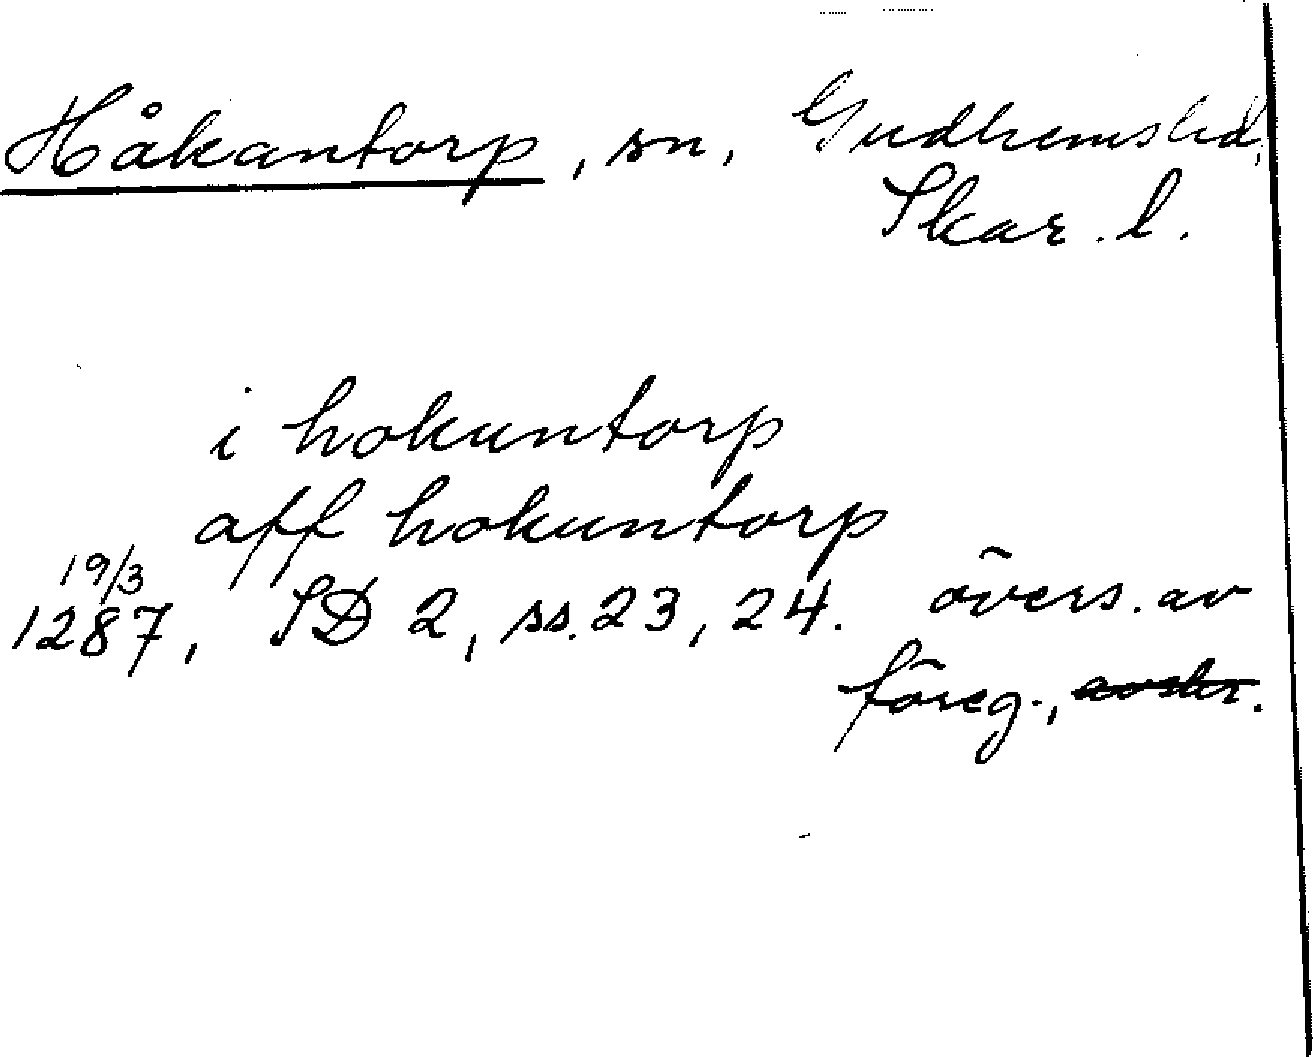 Håkantorp, sn, Gudhems hd,
Skar. l.
i hokuntorp
aff hokuntorp
19/3
1287, SD 2, ss. 23, 24. övers. av
föreg., avskr.